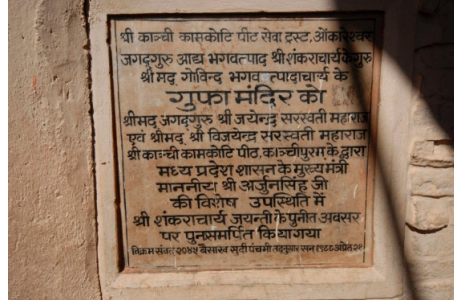 श्री काञ्ची कामकोटि पीट सेवा ट्रस्ट, ओंकारेश्वर
जगद्गुरु आद्य भगवत्पाद श्री शंकराचार्य के गुरु
श्री मद् गोविन्द भगवत्पादाचार्य के
गुफा मंदिर को
श्रीमद् जगद्गुरु श्री जयेन्द्र सरस्वती महाराज
एवं श्रीमद् श्री विजयेन्द्र सरस्वती महाराज
श्री काञ्ची कामकोटि पीठ, काञ्चीपुरम के द्वारा
मध्य प्रदेश शासन के मुख्य मंत्री
माननीय श्री अर्जुनसिंह जी
की विशेष उपस्थिति में
श्री शंकराचार्य जयन्ती के पुनीत अवसर
पर पुनःसमर्पित किया गया
विक्रम संवत् २०४५ वैसाख सुदी पंचमी तद्नुसार सन् १९८८ अप्रेल